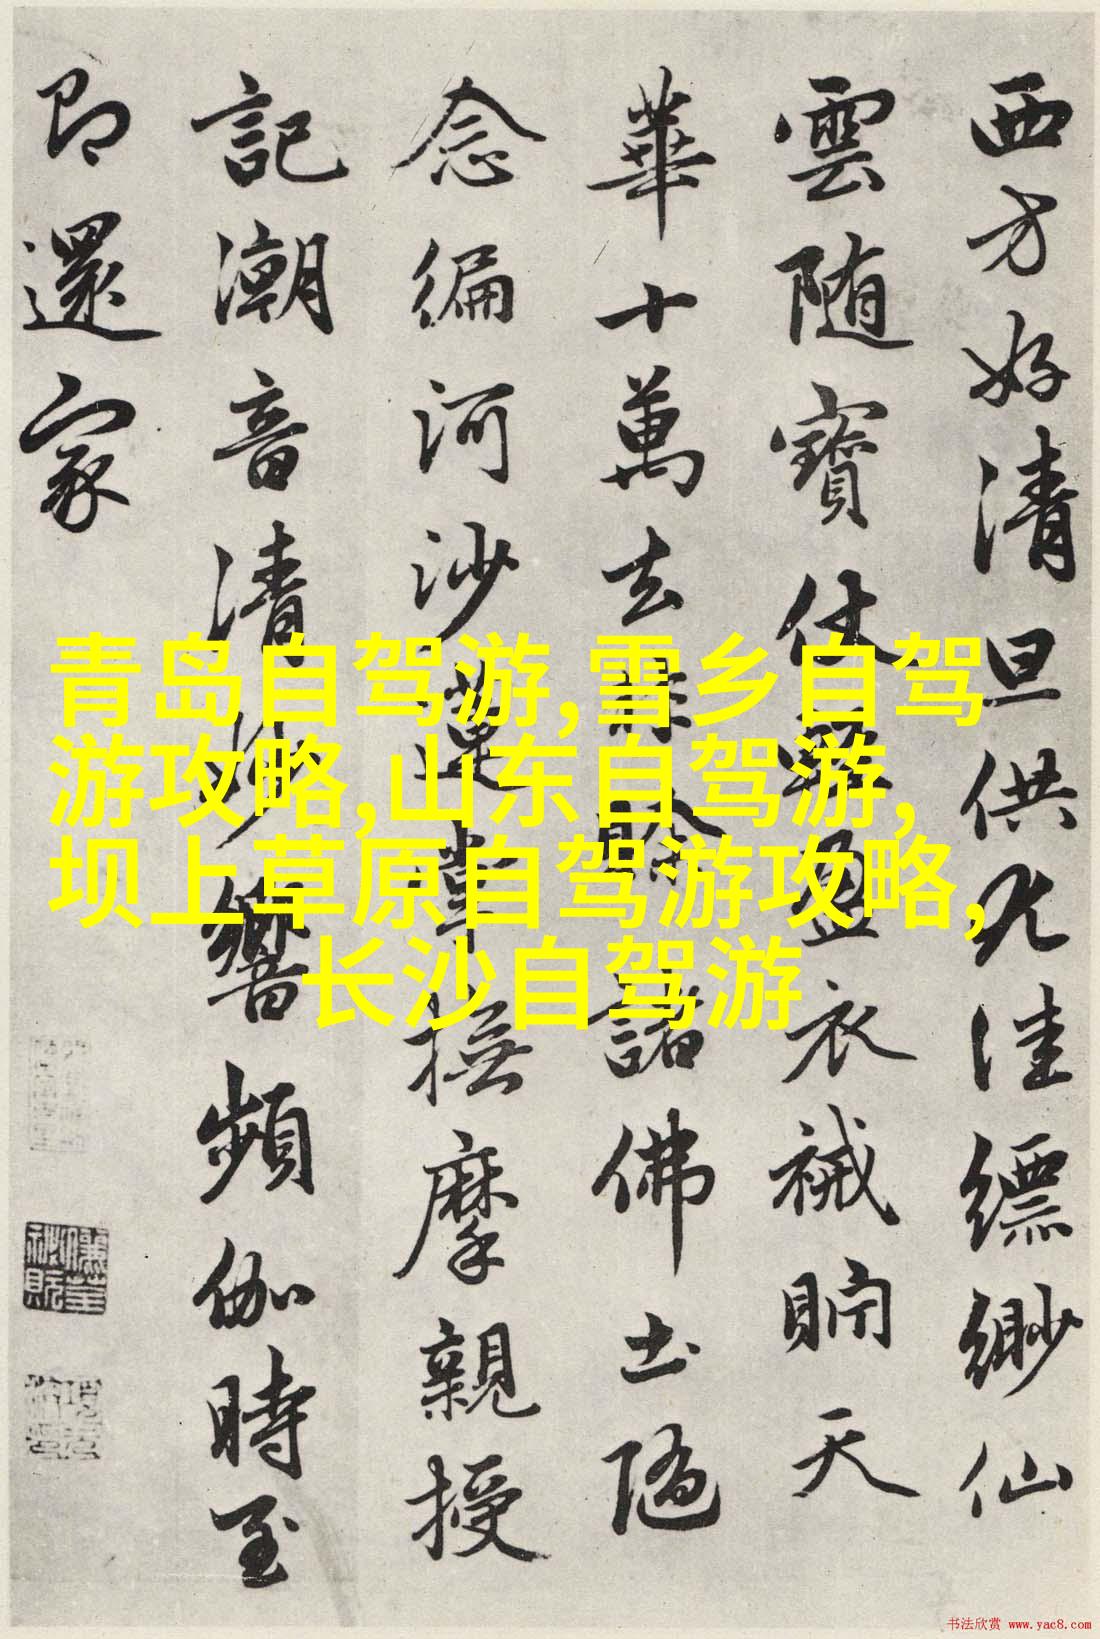 西方好清旦供尤佳縹緲仙
雲随寶仗輕盈衣裓貯天
華十萬去還賒諸佛土隨
念徧河沙蓮掌撫摩親授
記潮音清妙響頻伽時至
即還家
青岛自驾游,雪乡自驾
游攻略,山东自驾游,
坝上草原自驾游攻略,
长沙自驾游
书法欣赏 www.yac8.com